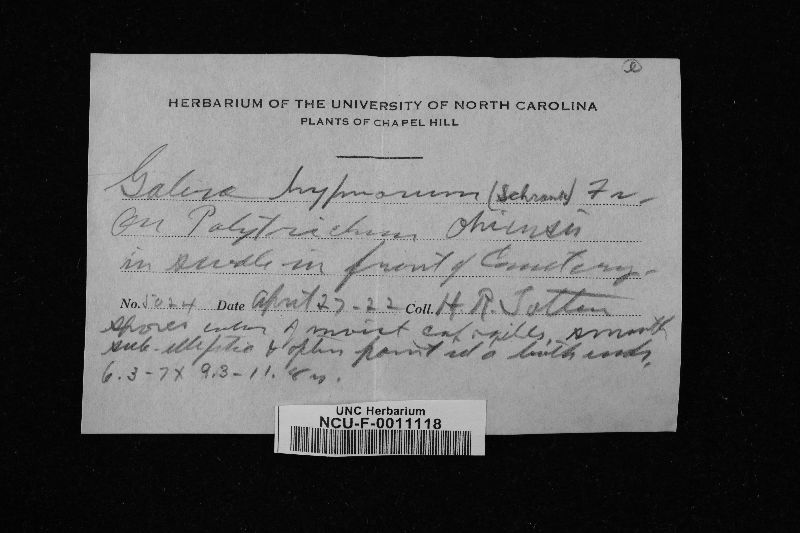 HERBARIUM OF THE UNIVERSITY OF NORTH CAROLINA
PLANTS OF CHAPEL HILL
Galera hypnorum (Schrank) Fr.
On Polytrichum ohioensis
in swale in front of Cemetery.
No. 5024 Date April 27-22 Coll. H. R. Totten
Spores color of moist cap & gills, smooth
sub-elliptic & often pointed both ends,
6.3-7 x 9.3-11.
UNC Herbarium
NCU-F-0011118